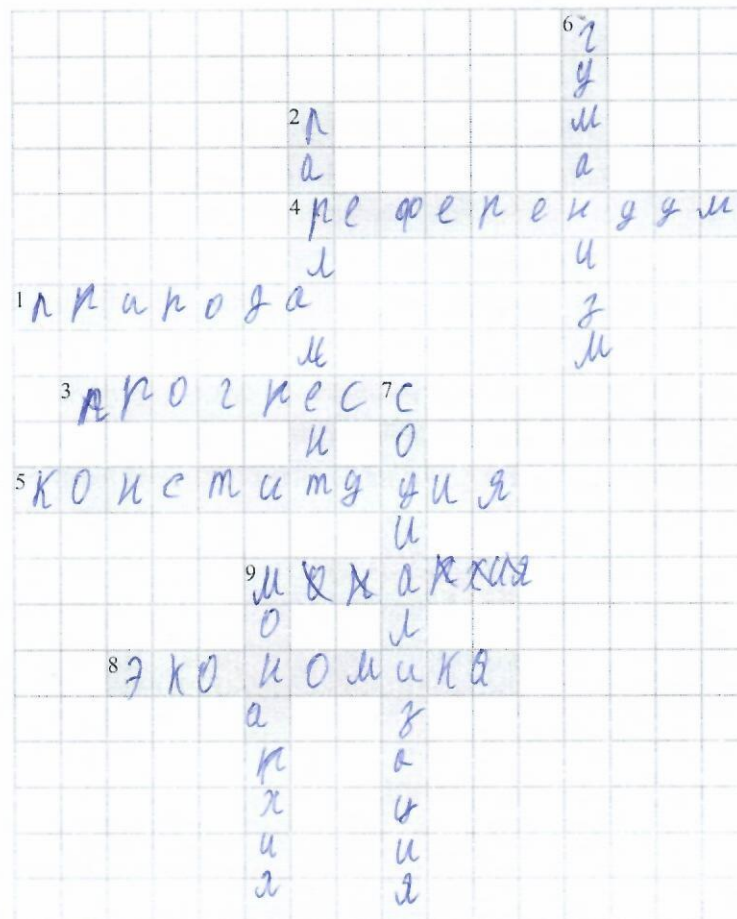 6 гуманизм
2 парламент
4 референдум
1 природа
3 прогресс
7 социализация
5 конституция
9 монархия
8 экономика